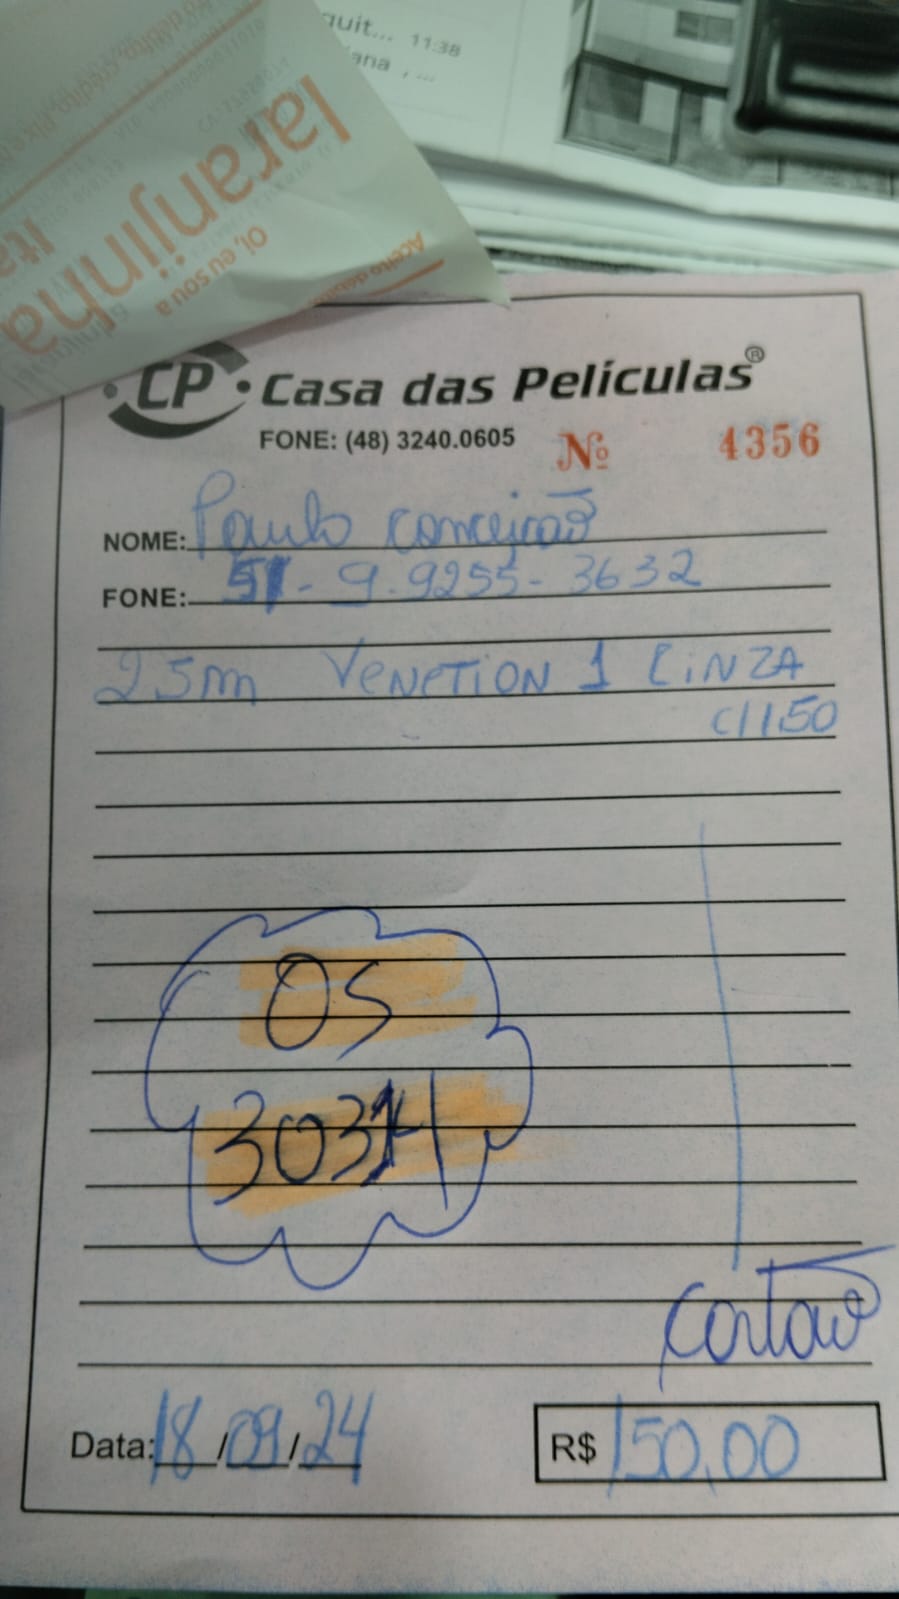 quit... 11:38
ana , ...
laranjinha
Ita
Oi, eu sou a
Aceito débito
CP Casa das Películas®
FONE: (48) 3240.0605 Nº 4356
NOME: Paulo Conceição
FONE: 51-9.9255-3632
25m VENETION 1 CINZA
c/1,50
OS
30314
Cartão
Data: 18/09/24 R$ 150,00